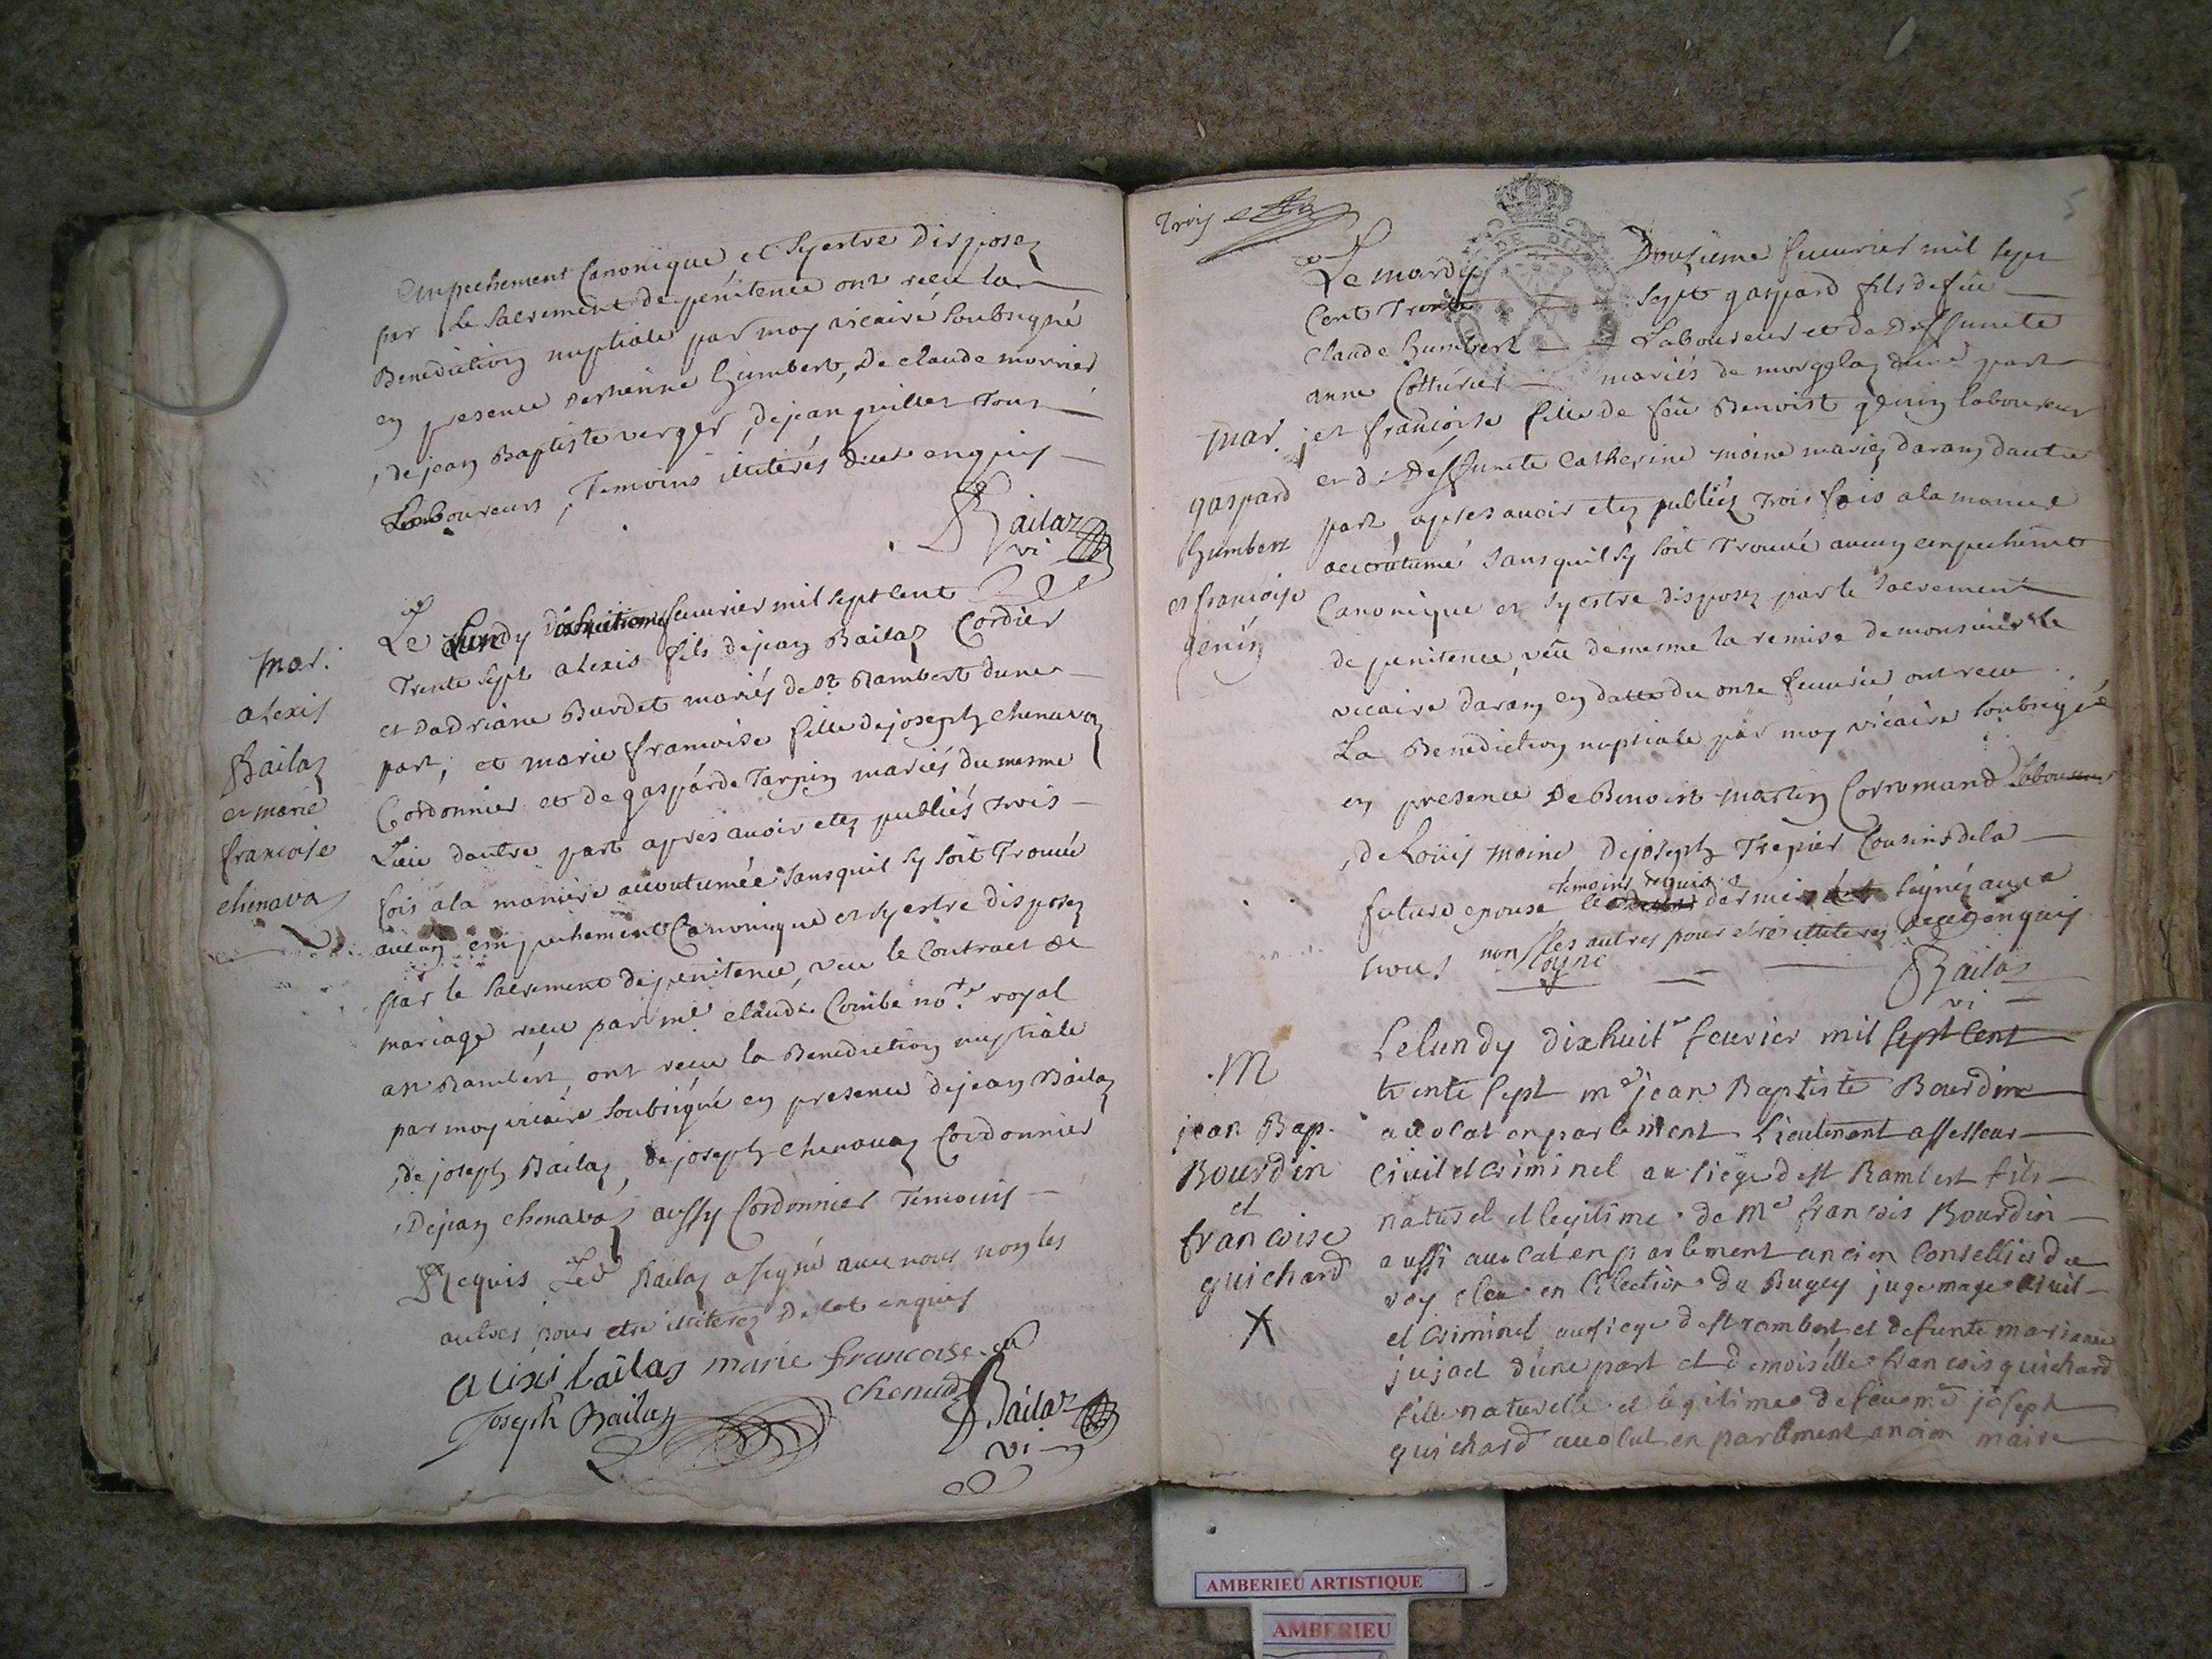 empechement Canonique et Syestre disposez
par le Sacrement de pénitence ont receu la
Benediction nuptiale par moy vicaire Soubsigné
en presence destienne humbert, de claude morrier
, de jean Baptiste verger, de jean guillet Tous
Laboureurs, Temoins illiterés duet enquis
Bailaz
vi
mar.
alexis
Bailaz
et marie
francoise
chenavaz
Le Lundy dixhuitieme feuurier mil sept cent
Trente Sept alexis fils dejean Bailaz Cordier
et dadriane Burdet mariés de St Rambert dune
part; et marie francoise fille dejoseph chenavaz
Cordonnier et de gasparde Tarpin mariés du mesme
Lieu dautre part apres auoir etez publiés trois
fois ala maniere accoutumée Sans quil Sy soit Trouué
aucun empechement Canonique et Syestre disposez
par le Sacrement de penitence, veu le Contract de
mariage receu par me claude Combe nore royal
a St Rambert, ont receu la Benediction nuptiale
par moy vicaire Soubsigné en presence dejean Bailaz
, de joseph Bailaz, de joseph chenauaz Cordonnier
, Dejean chenavaz aussy Cordonnier Temoins
Requis Led Bailaz a signé auec nous non les
autres pour etre illiterez de cet enquis
alixi bailas marie francoise
chenud
Joseph Bailaz
Bailaz
vi
Trois
5
Le mardy Douzieme feuurier mil sept
Cent Trente Sept gaspard fils de feu
Claude humbert Laboureur et de deffuncte
anne Cotturier mariés de morgelaz dune part
mar.
gaspard
humbert
et francoise
genin
; et francoise fille de feu Benoist genin laboureur
et de deffuncte Catherine moine mariez daran dautre
part, apres auoir etez publiéz trois fois ala maniere
accoutumé Sans quil Sy soit Trouué aucun empechemt
Canonique et Syestre disposez par le Sacrement
de penitence, veu demesme la remise de monsieur le
vicaire daran en datte du onze feuurier ont receu
La Benediction nuptiale par moy vicaire Soubsigné
en presence De Benoist martin Corromand laboureur
, de Loüis moine Dejoseph Trepier Cousins de la
temoins requis
future epouse le dernier signéz auec
nous non les autres pour etre illiteres de cet enquis
Soyne
Bailaz
vi
.M
jean Bap.
Bourdin
et
francoise
guichard
X
Le lundy dixhuit feurier mil sept cent
trente sept me jean Baptiste Bourdin
auocat en parlement Lieutenant assesseur
Ciuil et Criminel au siege de st Rambert fils
naturel et legitime de Me francois Bourdin
aussi auocat en parlement ancien Conseillier du
roy eleu en l'election du Bugey juge mage ciuil
et Criminel au siege de st rambert et defunte marianne
jujat d'une part et demoiselle francois guichard
fille naturelle et legitime de feu me joseph
guichard auocat en parlement ancien maire
AMBERIEU ARTISTIQUE
AMBERIEU